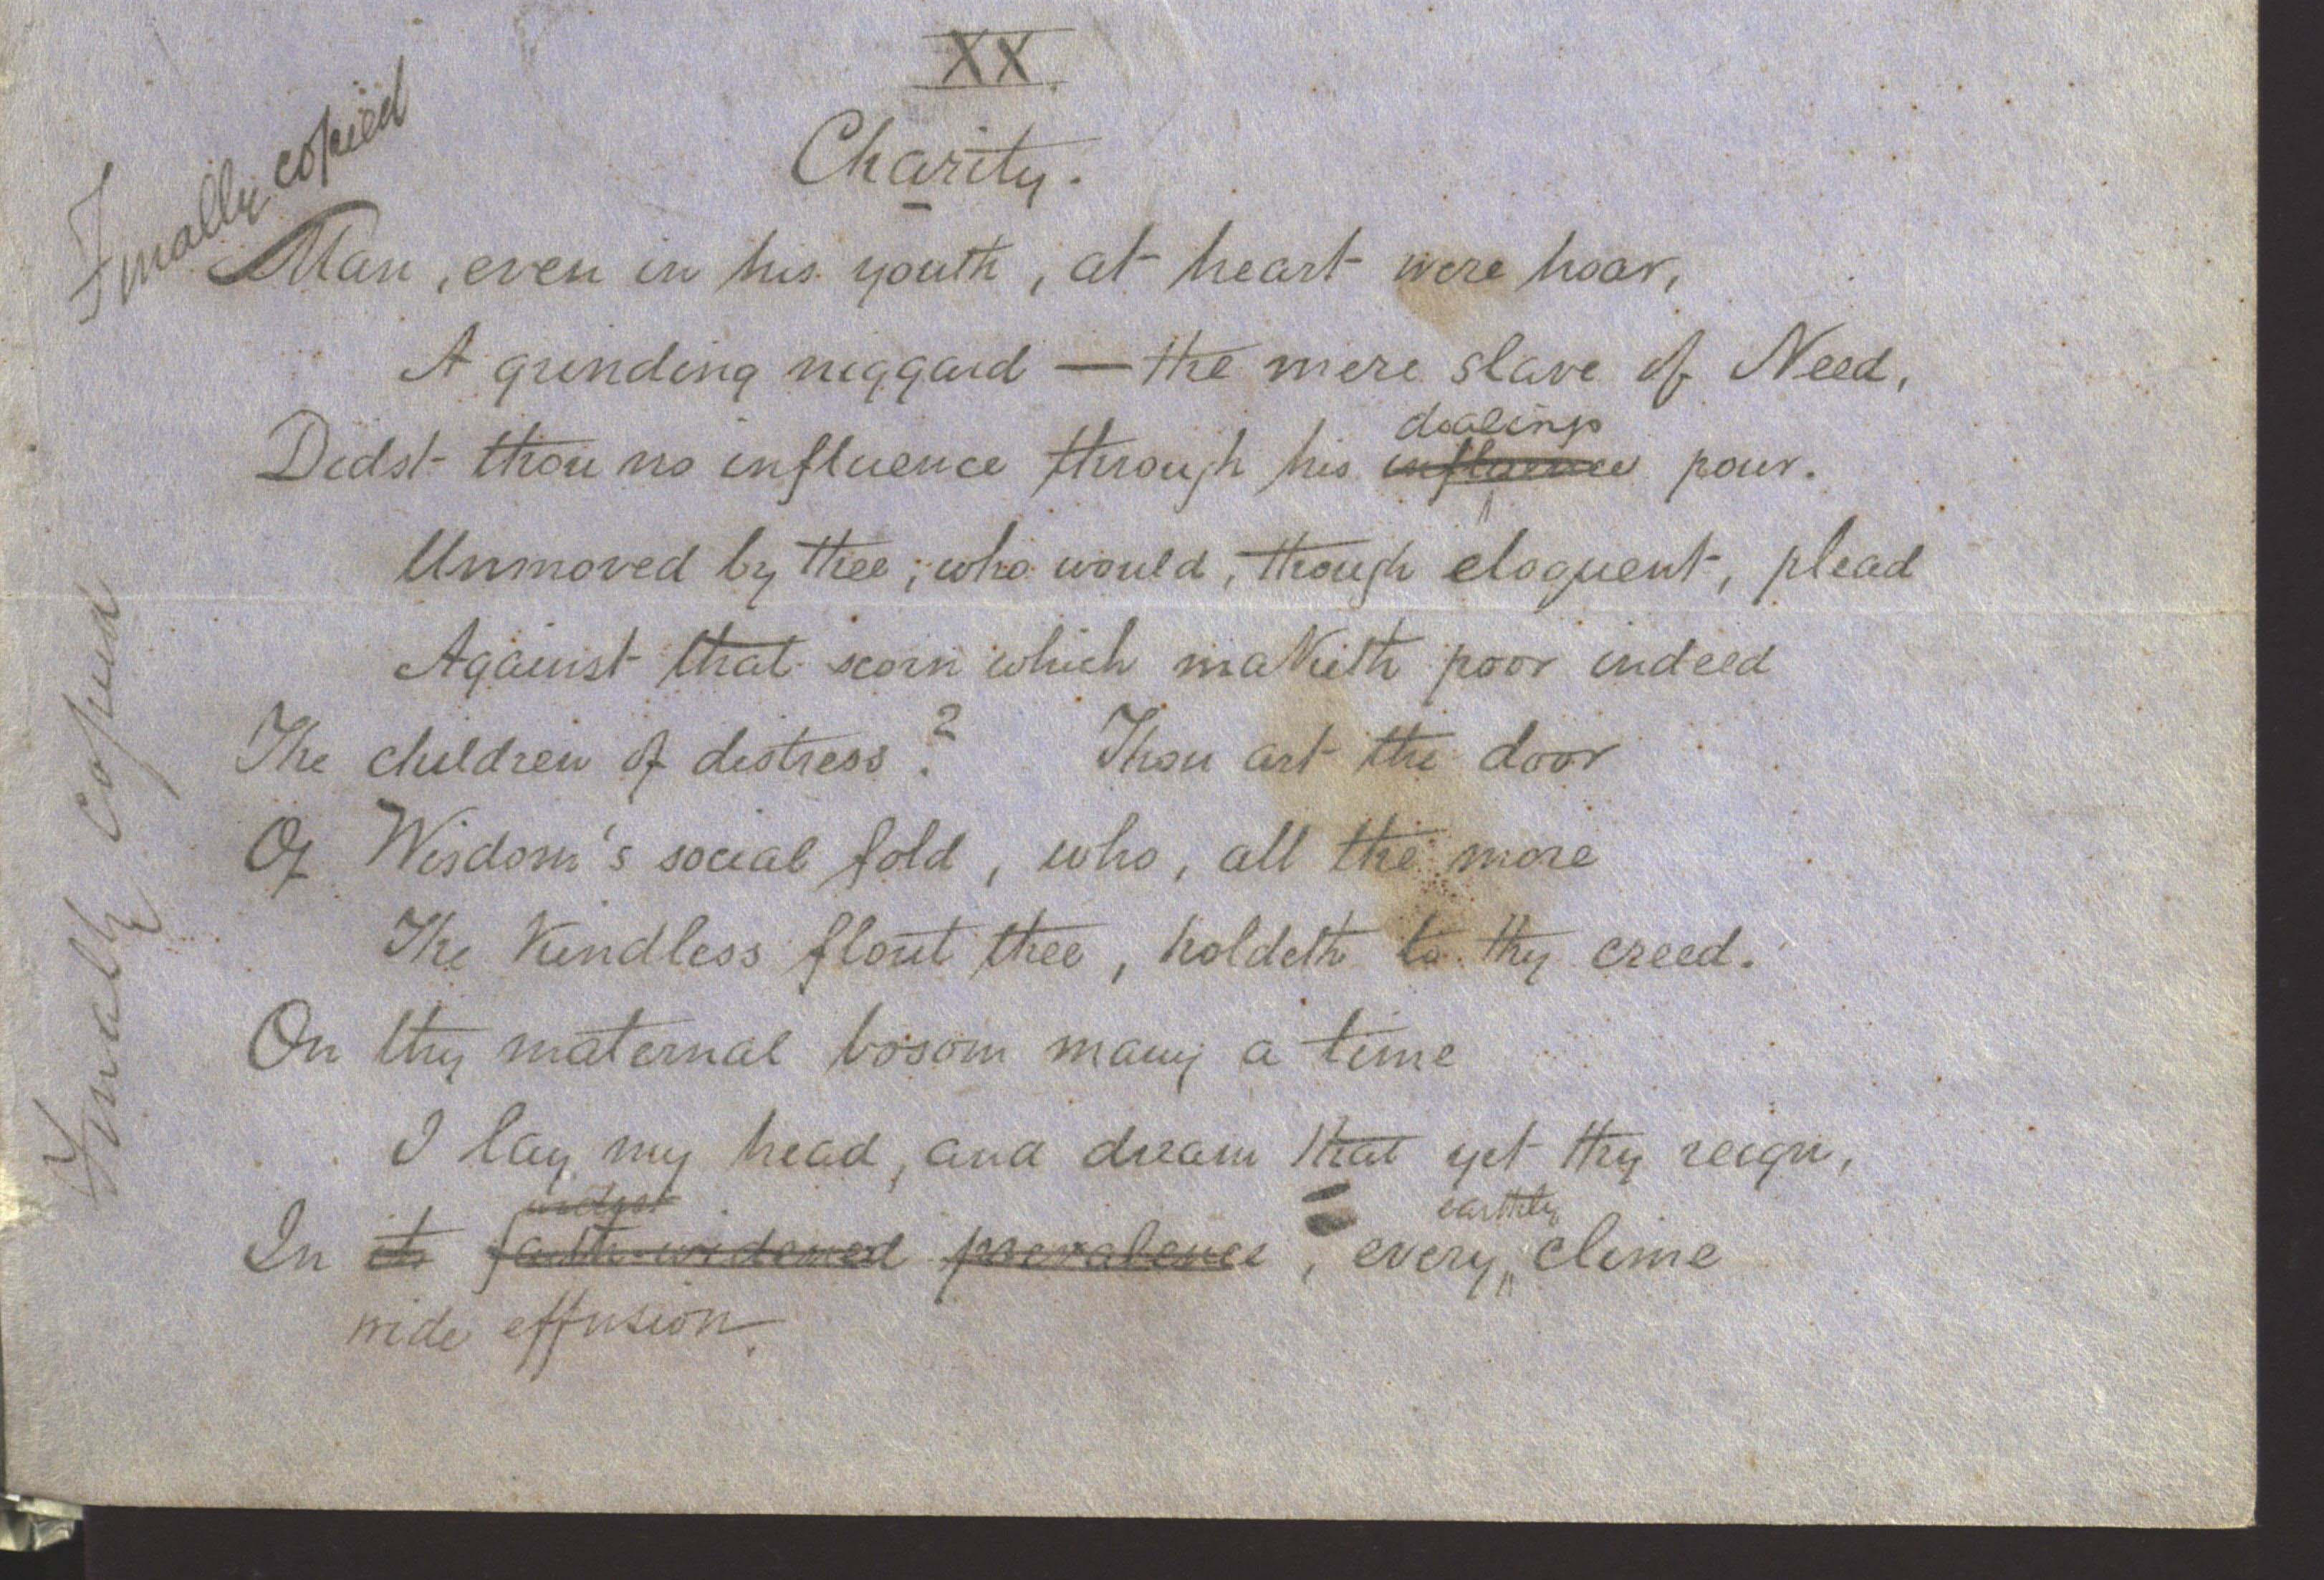 XX
Charity.
Finally copied
Man, even in his youth, at heart were hoar,
A grinding niggard — the mere slave of Need,
dealings
Didst thou no influence through his influence pour.
Unmoved by thee, who would, though eloquent, plead
Against that scorn which maketh poor indeed
The children of distress? Thou art the door
Of Wisdom's social fold, who, all the more
The Kindless flout thee, holdeth to thy creed.
On thy maternal bosom many a time
I lay my head, and dream that yet thy reign,
widest earthly
In its faith-widened prevalence, every clime
wide effusion.
Finally copied